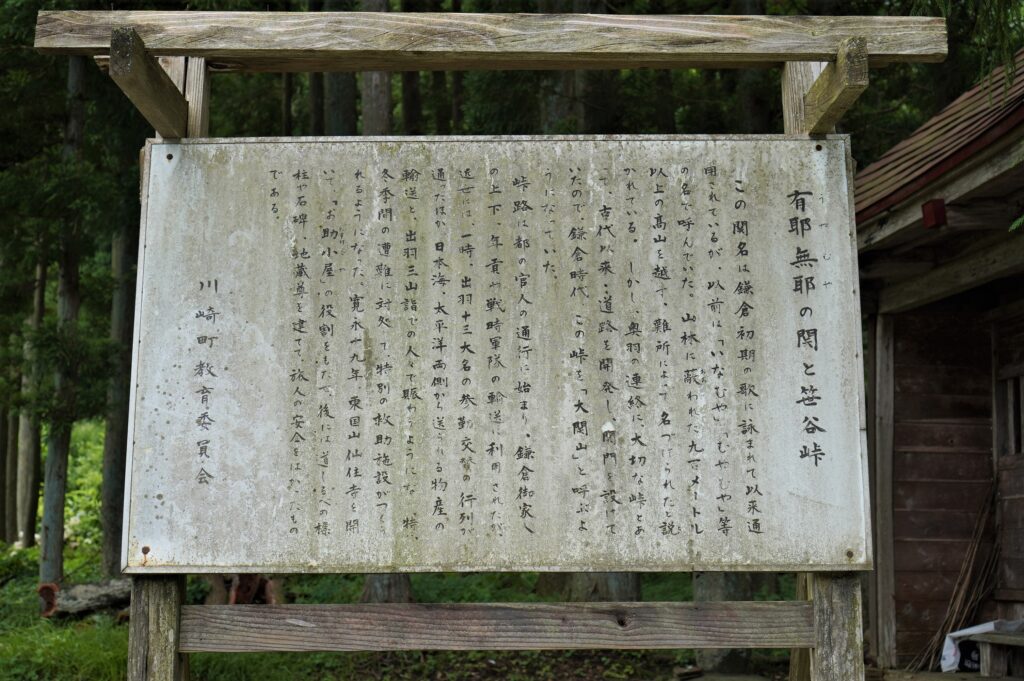 有耶無耶の関と笹谷峠
うやむや
この関名は鎌倉初期の歌に詠まれて以来通
用されているが、以前は「いなむやい」「むやむや」等
の名で呼んでいた。山林に蔽われた九百メートル
以上の高山を越す、難所によって名づけられたと説
かれている。しかし、奥羽の連絡に大切な峠とあ
って、古代以来、道路を開発し、関門を設けて
いたので、鎌倉時代、この峠を「大関山」と呼ぶよ
うになっていた。
峠路は都の官人の通行に始まり、鎌倉御家人
の上下、年貢や戦時軍隊の輸送に利用されたが、
近世には一時、出羽十三大名の参勤交替の行列が
通ったほか、日本海、太平洋両側から送られる物産の
輸送と、出羽三山詣での人々で賑わうようになり、特に
冬季間の遭難に対処して、特別の救助施設がつくら
れるようになった。寛永十九年、東国山仙住寺を開
いて、「お助小屋」の役割をもたせ、後には道しるべの標
柱や石碑、地蔵尊を建てて、旅人の安全をはかったもの
である。
川崎町教育委員会